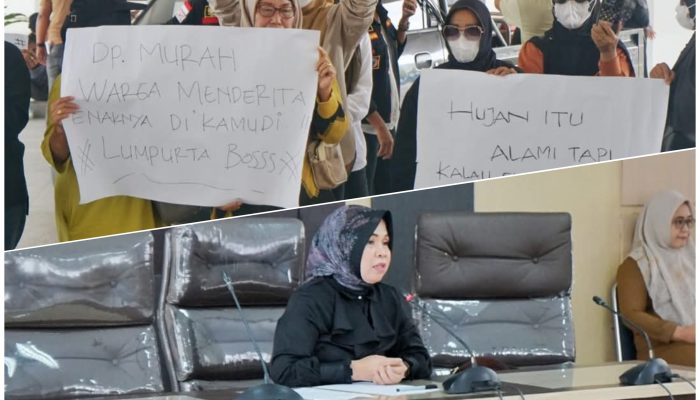 DP. MURAH
WARGA MENDERITA
ENAKNYA DI KAMUDI !!
# LUMPURTA BOSSS #
HUJAN ITU
ALAMI TAPI
KALAU